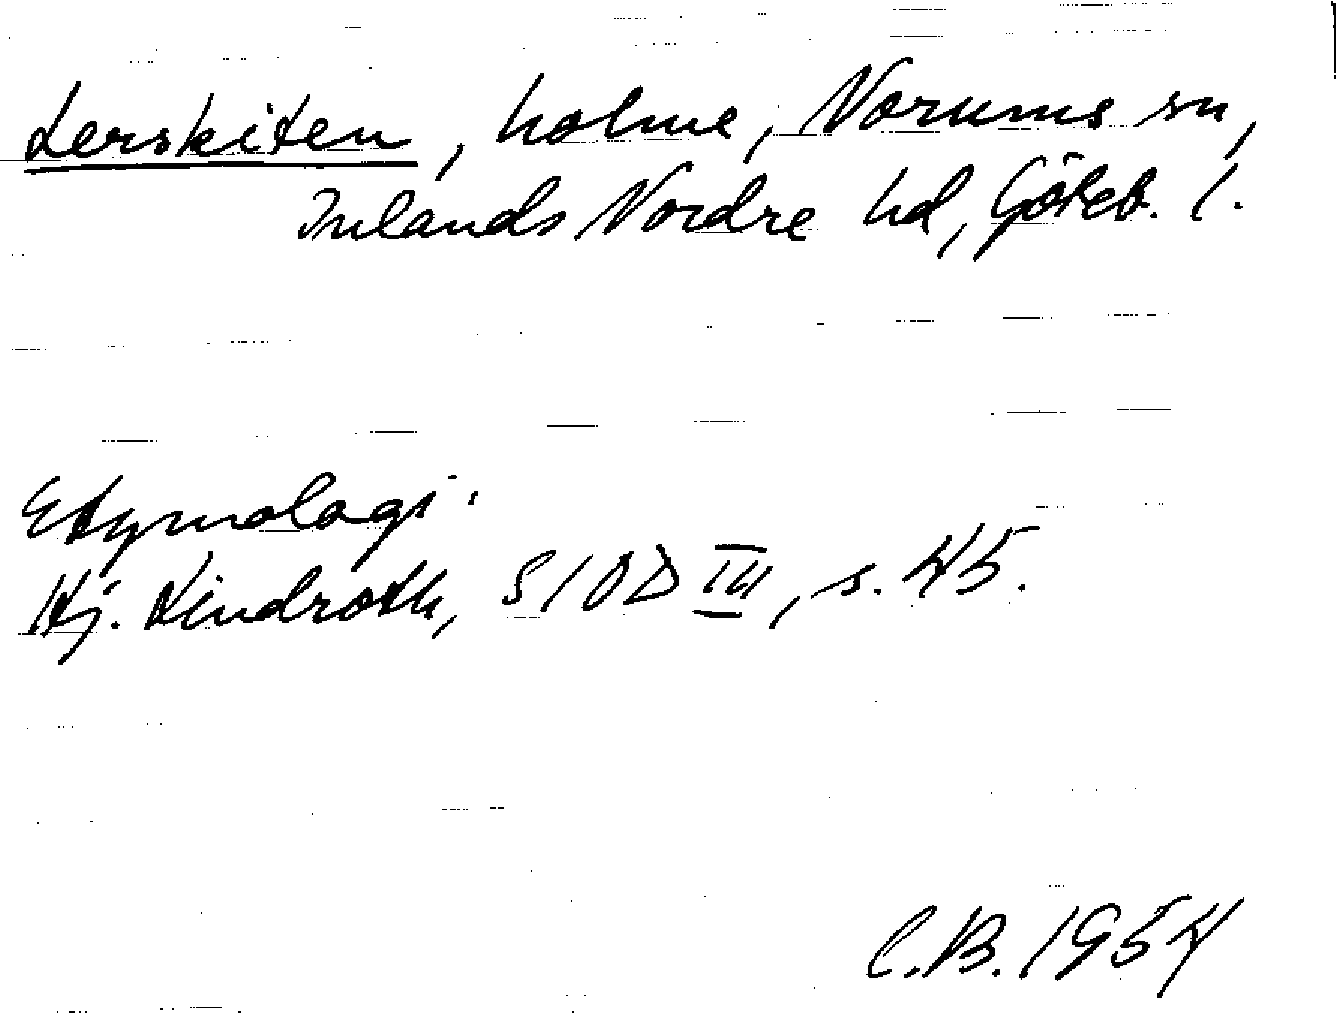 Lerskiten, holme, Norums sn,
Inlands Nordre hd, Göteb. l.
Etymologi:
Hj. Lindroth, SIOD III, s. 45.
C.B. 1954